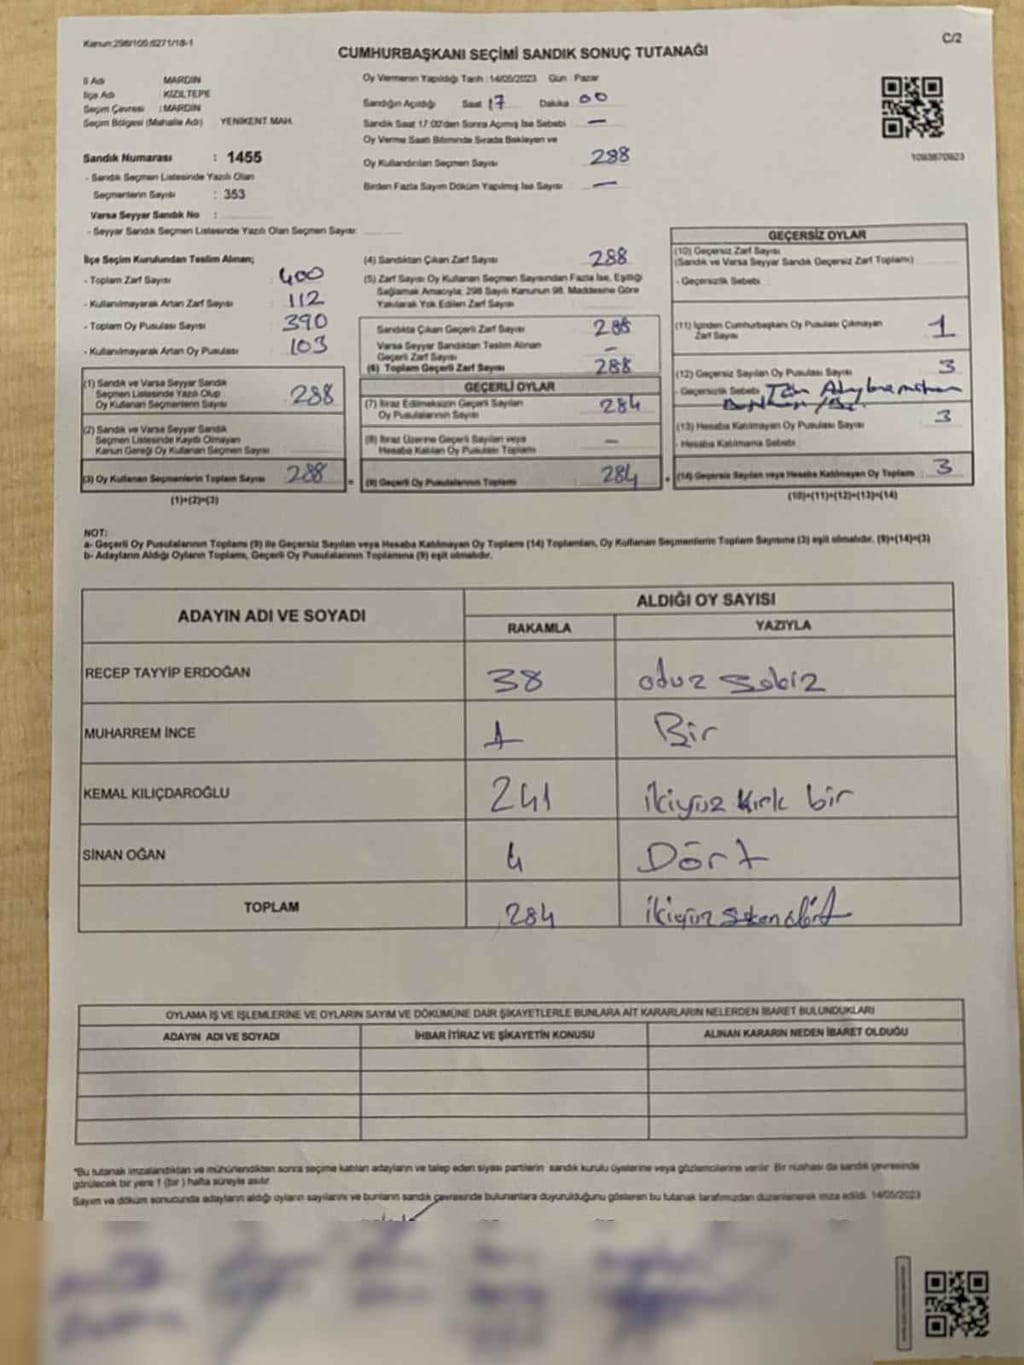 Kanun:298/105;6271/18-1
C/2
CUMHURBAŞKANI SEÇİMİ SANDIK SONUÇ TUTANAĞI
İl Adı MARDİN
İlçe Adı KIZILTEPE
Seçim Çevresi : MARDİN
Seçim Bölgesi (Mahalle Adı) YENİKENT MAH.
Sandık Numarası : 1455
- Sandık Seçmen Listesinde Yazılı Olan
Seçmenlerin Sayısı : 353
Varsa Seyyar Sandık No :
- Seyyar Sandık Seçmen Listesinde Yazılı Olan Seçmen Sayısı:
Oy Vermenin Yapıldığı Tarih :14/05/2023 Gün : Pazar
Sandığın Açıldığı Saat 17 Dakika 00
Sandık Saat 17:00'den Sonra Açılmış İse Sebebi —
Oy Verme Saati Bitiminde Sırada Bekleyen ve
Oy Kullandırılan Seçmen Sayısı 288
Birden Fazla Sayım Döküm Yapılmış İse Sayısı —
1093870923
İlçe Seçim Kurulundan Teslim Alınan;
- Toplam Zarf Sayısı 400
- Kullanılmayarak Artan Zarf Sayısı 112
- Toplam Oy Pusulası Sayısı 390
- Kullanılmayarak Artan Oy Pusulası 103
(1) Sandık ve Varsa Seyyar Sandık
Seçmen Listesinde Yazılı Olup
Oy Kullanan Seçmenlerin Sayısı 288
(2) Sandık ve Varsa Seyyar Sandık
Seçmen Listesinde Kayıtlı Olmayan
Kanun Gereği Oy Kullanan Seçmen Sayısı
(3) Oy Kullanan Seçmenlerin Toplam Sayısı 288 =
(1)+(2)=(3)
(4) Sandıktan Çıkan Zarf Sayısı 288
(5) Zarf Sayısı Oy Kullanan Seçmen Sayısından Fazla İse, Eşitliği
Sağlamak Amacıyla; 298 Sayılı Kanunun 98. Maddesine Göre
Yakılarak Yok Edilen Zarf Sayısı
Sandıkta Çıkan Geçerli Zarf Sayısı 288
Varsa Seyyar Sandıktan Teslim Alınan
Geçerli Zarf Sayısı —
(6) Toplam Geçerli Zarf Sayısı 288
GEÇERLİ OYLAR
(7) İtiraz Edilmeksizin Geçerli Sayılan
Oy Pusulalarının Sayısı 284
(8) İtiraz Üzerine Geçerli Sayılan veya
Hesaba Katılan Oy Pusulaları Toplamı —
(9) Geçerli Oy Pusulalarının Toplamı 284 +
GEÇERSİZ OYLAR
(10) Geçersiz Zarf Sayısı
(Sandık ve Varsa Seyyar Sandık Geçersiz Zarf Toplamı)
- Geçersizlik Sebebi
(11) İçinden Cumhurbaşkanı Oy Pusulası Çıkmayan
Zarf Sayısı 1
(12) Geçersiz Sayılan Oy Pusulası Sayısı 3
- Geçersizlik Sebebi
(13) Hesaba Katılmayan Oy Pusulası Sayısı 3
- Hesaba Katılmama Sebebi
(14) Geçersiz Sayılan veya Hesaba Katılmayan Oy Toplamı 3
(10)+(11)+(12)+(13)=(14)
NOT:
a- Geçerli Oy Pusulalarının Toplamı (9) ile Geçersiz Sayılan veya Hesaba Katılmayan Oy Toplamı (14) Toplamları, Oy Kullanan Seçmenlerin Toplam Sayısına (3) eşit olmalıdır. (9)+(14)=(3)
b- Adayların Aldığı Oyların Toplamı, Geçerli Oy Pusulalarının Toplamına (9) eşit olmalıdır.
ADAYIN ADI VE SOYADI
ALDIĞI OY SAYISI
RAKAMLA YAZIYLA
RECEP TAYYİP ERDOĞAN 38 otuz sekiz
MUHARREM İNCE 1 Bir
KEMAL KILIÇDAROĞLU 241 ikiyüz kırk bir
SİNAN OĞAN 4 Dört
TOPLAM 284 ikiyüz seksen dört
OYLAMA İŞ VE İŞLEMLERİNE VE OYLARIN SAYIM VE DÖKÜMÜNE DAİR ŞİKAYETLERLE BUNLARA AİT KARARLARIN NELERDEN İBARET BULUNDUKLARI
ADAYIN ADI VE SOYADI İHBAR İTİRAZ VE ŞİKAYETİN KONUSU ALINAN KARARIN NEDEN İBARET OLDUĞU
*Bu tutanak imzalandıktan ve mühürlendikten sonra seçime katılan adayların ve talep eden siyasi partilerin sandık kurulu üyelerine veya gözlemcilerine verilir. Bir nüshası da sandık çevresinde
görülecek bir yere 1 (bir) hafta süreyle asılır.
Sayım ve döküm sonucunda adayların aldığı oyların sayılarını ve bunların sandık çevresinde bulunanlara duyurulduğunu gösteren bu tutanak tarafımızdan düzenlenerek imza edildi. 14/05/2023